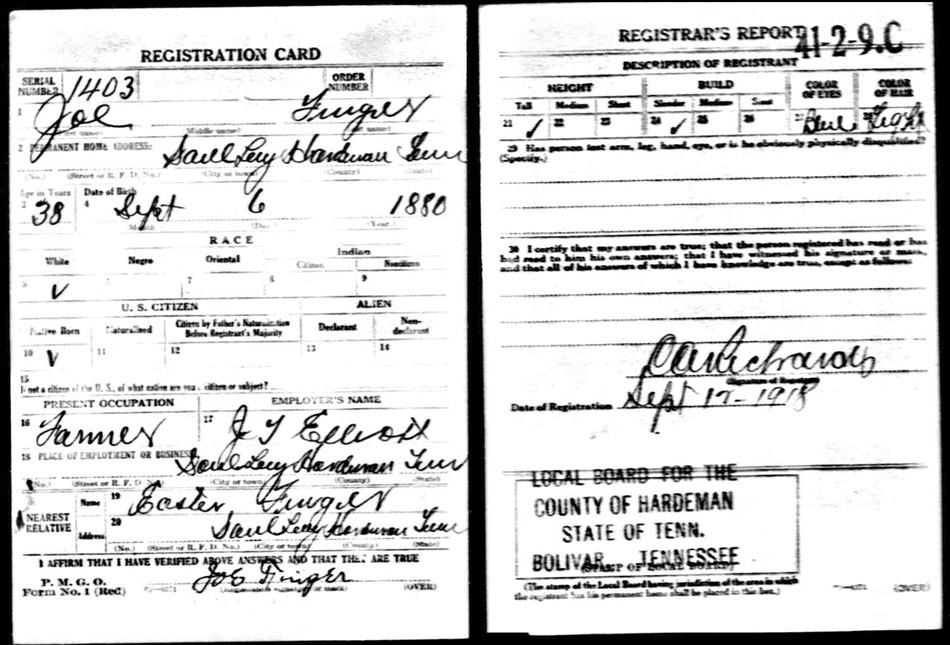 REGISTRATION CARD
SERIAL NUMBER 1403 ORDER NUMBER
1 Joe Finger
(First name) (Middle name) (Last name)
2 PERMANENT HOME ADDRESS:
Hardeman Tenn
(No.) (Street or R. F. D. No.) (City or town) (County) (State)
Age in Years Date of Birth
3 38 4 Sept 6 1880
Month (Day) (Year)
RACE
White Negro Oriental Indian
Citizen Noncitizen
5 V 6 7 8 9
U. S. CITIZEN ALIEN
Native Born Naturalized Citizen by Father's Naturalization Before Registrant's Majority Declarant Non-declarant
10 V 11 12 13 14
15
If not a citizen of the U. S., of what nation are you a citizen or subject?
PRESENT OCCUPATION EMPLOYER'S NAME
16 Farmer 17 J T Elliott
18 PLACE OF EMPLOYMENT OR BUSINESS
Hardeman Tenn
(No.) (Street or R. F. D. No.) (City or town) (County) (State)
NEAREST RELATIVE
Name 19 Easter Finger
Address 20 Hardeman Tenn
(No.) (Street or R. F. D. No.) (City or town) (County) (State)
I AFFIRM THAT I HAVE VERIFIED ABOVE ANSWERS AND THAT THEY ARE TRUE
P. M. G. O.
Form No. 1 (Red) JOE Finger (OVER)
(Registrant's signature or mark)
REGISTRAR'S REPORT 41-2-9.C
DESCRIPTION OF REGISTRANT
HEIGHT BUILD COLOR OF EYES COLOR OF HAIR
Tall Medium Short Slender Medium Stout
21 ✓ 22 23 24 ✓ 25 26 27 Blue 28
29 Has person lost arm, leg, hand, eye, or is he obviously physically disqualified?
(Specify.)
30 I certify that my answers are true; that the person registered has read or has
had read to him his own answers; that I have witnessed his signature or mark,
and that all of his answers of which I have knowledge are true, except as follows:
(Signature of Registrar)
Date of Registration Sept 12-1918
LOCAL BOARD FOR THE
COUNTY OF HARDEMAN
STATE OF TENN.
BOLIVAR, TENNESSEE
(STAMP OF LOCAL BOARD)
(The stamp of the Local Board having jurisdiction of the area in which
the registrant has his permanent home shall be placed in this box.)
(OVER)